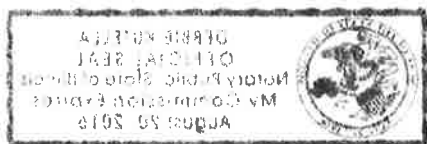 DEBBIE KUTELLA
OFFICIAL SEAL
Notary Public, State of Illinois
My Commission Expires
August 20, 2016